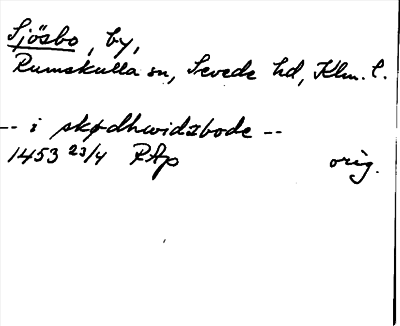 Sjösbo, by,
Rumskulla sn, Sevede hd, Klm. l.
-- i skødhwidzbode --
1453 23/4 RAp orig.